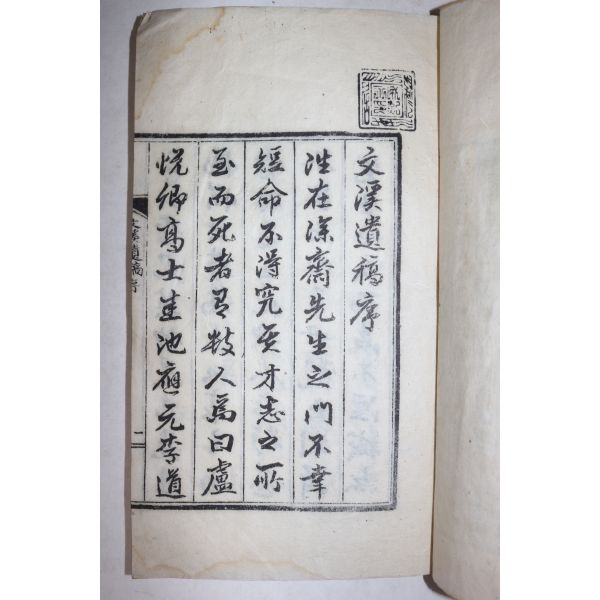 文溪遺稿序
往在深齋先生之門不幸
短命不淂究其才志之所
至而死者有數人焉曰盧
悦卿高士圭池應元李道
文溪遺稿序
一